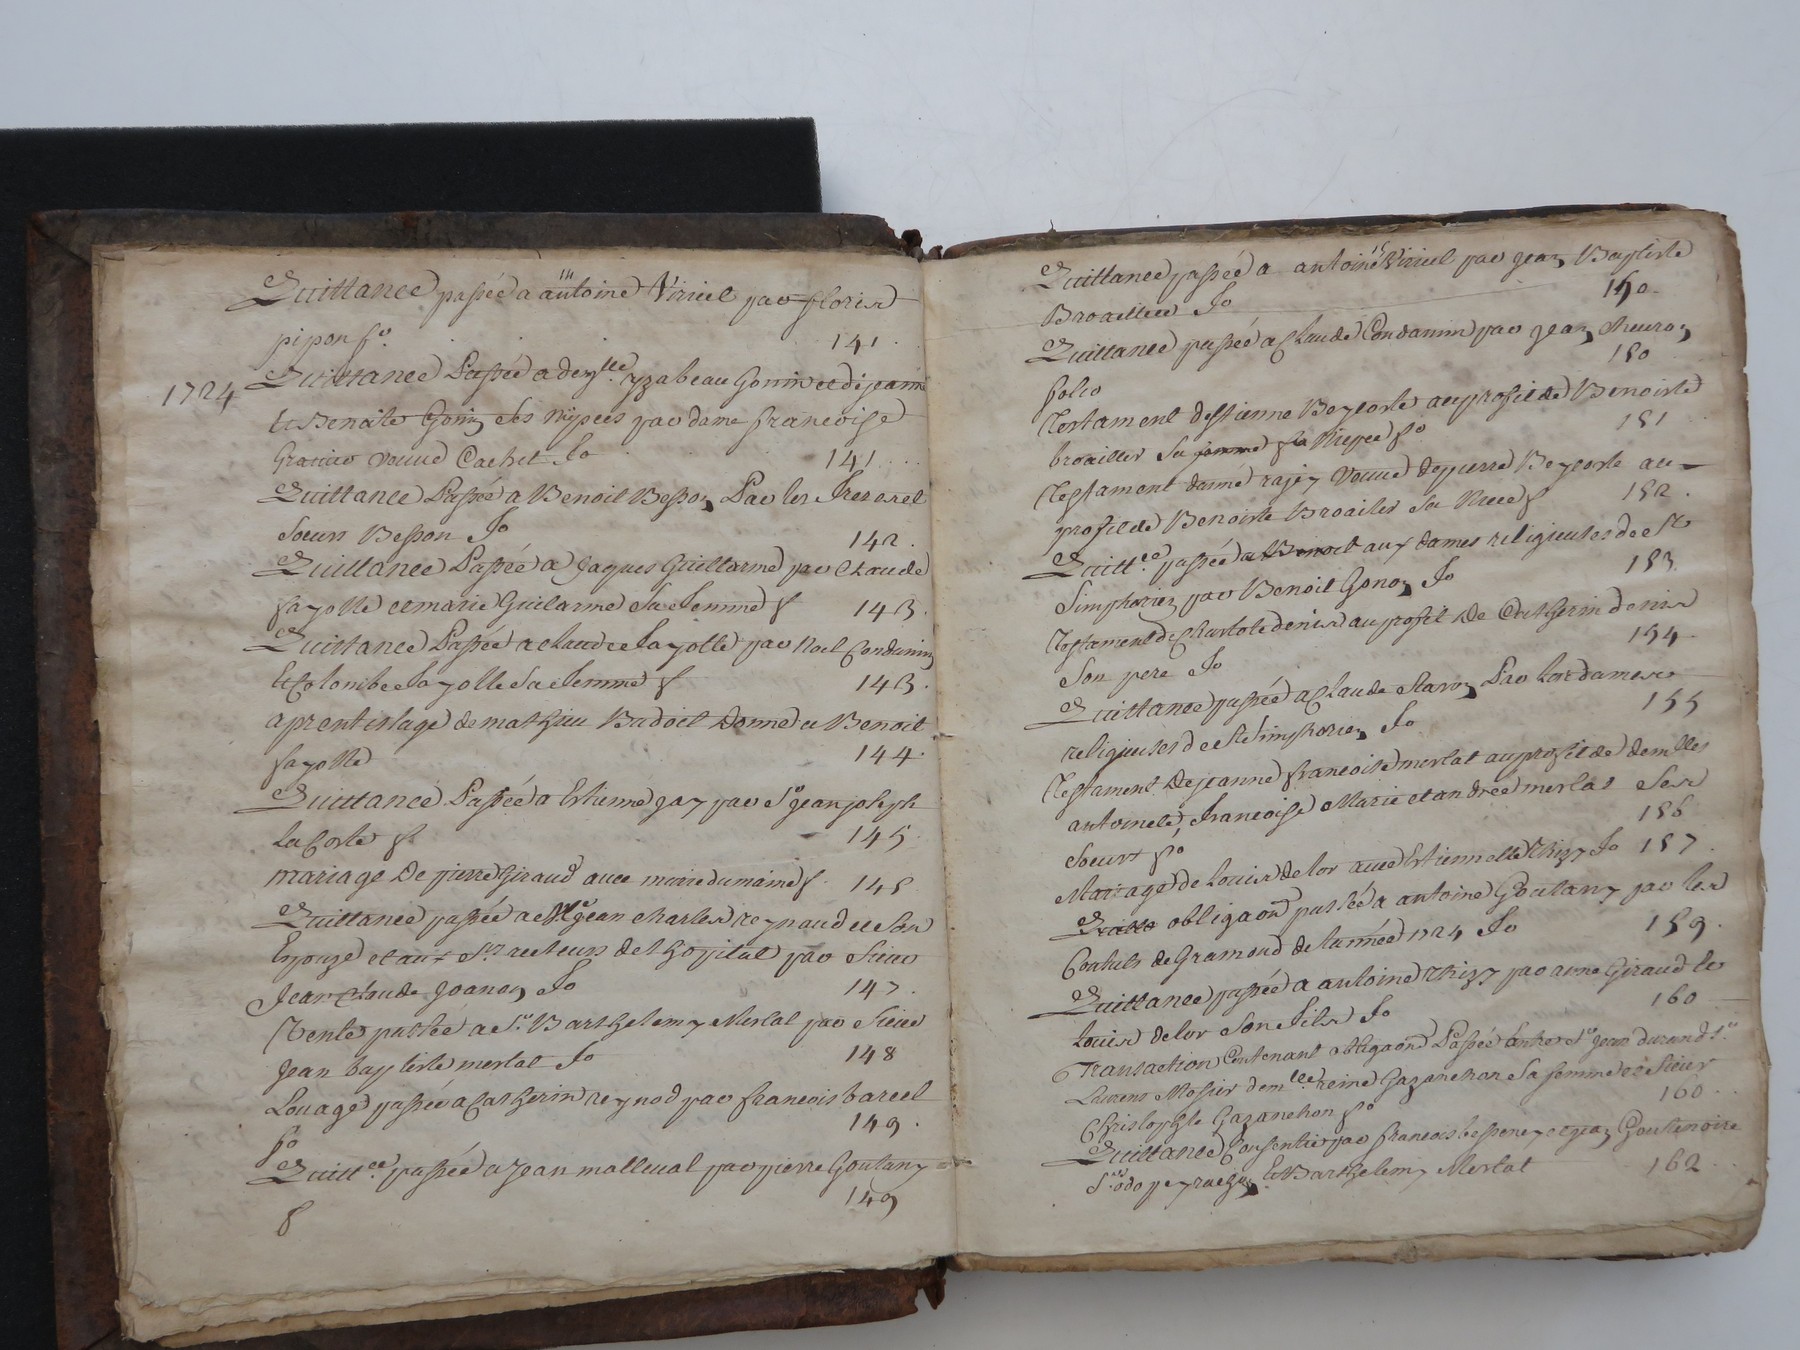 Quittance passée a antoine Viricel par floris
pipon fo. 141.
1724 Quittance Passée a deyslle yzabeau Gonin et a jeanne
et Benoite Gonin ses niepces par dame francoise
veuve Cachet fo 141
Quittance Passée a Benoit Besson Par les freres et
soeurs Besson fo 142.
Quittance Passée a Jaques Guillarme par Claude
fayolle et marie Guilarme Sa femme f 143.
Quittance Passée a Claude fayolle par Noel Condamin
et Colombe fayolle Sa femme f 143.
aprentissage de mathieu Badoil donné a Benoit
fayolle 144.
Quittance Passée a Estienne gay par Sr jean joseph
LaCoste f. 145
mariage De pierre Giraud avec marie dumaine f. 145
Quittance passée a Me jean charles reynaud et Son
Epouze et aux Srs recteurs de lhopital par Sieur
Jean Claude Joanon fo 147.
Vente passée a Sr Barthelemy Merlat par Sieur
Jean baptiste merlat fo 148
Louage passé a Catherin reynod par francois barcel
fo 149.
Quittce passée a Jean malleval par pierre Goutany
f 149
Quittance passée a antoine Viricel par jean Baptiste
Broaillier fo 150.
Quittance passée a Claude Condamin par jean
folio 150
Testament destienne Beycoste au profit de Benoiste
broailler Sa niepce fo 151
Testament veuve de pierre Beycoste au
profit de Benoiste Broailler Sa Niece f 152.
Quittce passée aux dames religieuses de St
Simphorien par Benoit Gonon fo 153.
Testament de Charlote denis au profit De Catherin denis
Son pere fo 154.
Quittance passée a Claude Par les dames
religieuses de St Simphorien fo 155
Testament De jeanne francoise merlat au profit de demlles
antoinete, francoise Marie et andrée merlat Ses
Soeurs fo 156
Mariage de Louis delor avec Estiennette Thizy fo 157.
obligaon passée a antoine Goutany par les
Consuls de Gramond de lannée 1724 fo 159.
Quittance passée a antoine Thizy par anne Giraud et
Louis delor Son fils fo 160
Transaction Contenant obligaon Passée Entre Sr jean durand Sr
Laurens Mosnier demlle reine Gazanchon Sa femme et Sieur
Christophle Gazanchon fo 160
Quittance Consentie par francois bespeney et jean Goutenoire
Et Barthelemy Merlat 162